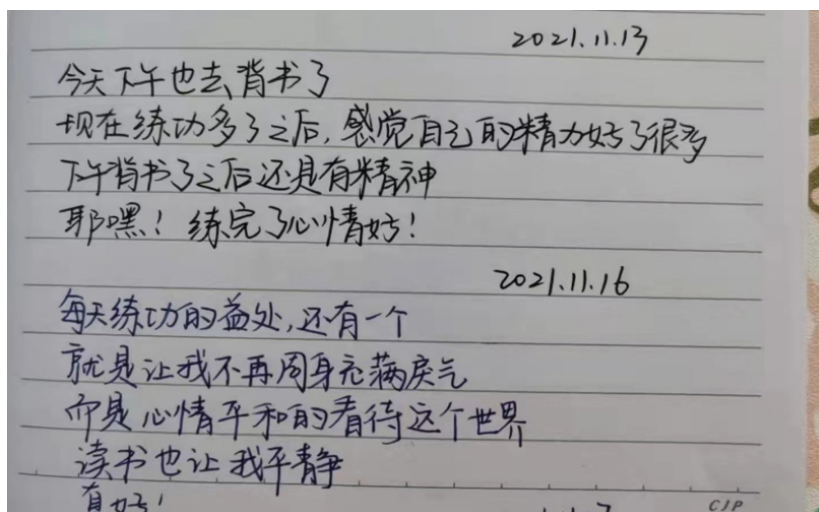 2021.11.13
今天下午也去背书了
现在练功多了之后,感觉自己的精力好了很多
下午背书了之后还是有精神
耶嘿!练完了心情好!
2021.11.16
每天练功的益处,还有一个
就是让我不再周身充满戾气
而是心情平和的看待这个世界
读书也让我平静
真好!
CJP